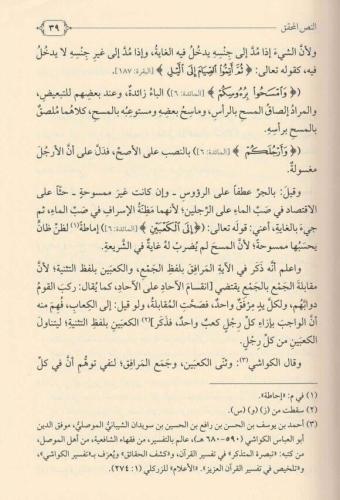 النص المحقق
٣٩
ولأنَّ الشيءَ إذا مُدَّ إلى جنسِهِ يدخُلُ فيه الغايةُ، وإذا مُدَّ إلى غيرِ جنسِهِ لا يدخُلُ
فيه، كقوله تعالى: ﴿ثُمَّ أَتِمُّوا الصِّيَامَ إِلَى الَّيْلِ﴾ [البقرة: ١٨٧].
﴿وَامْسَحُوا بِرُءُوسِكُمْ﴾ [المائدة: ٦] الباءُ زائدةٌ، وعند بعضِهم للتبعيضِ،
والمرادُ إلصاقُ المسحِ بالرأسِ، وماسِحُ بعضِه ومستوعِبُه بالمسحِ، كلاهما مُلصِقٌ
بالمسحِ برأسِه.
﴿وَأَرْجُلَكُمْ﴾ [المائدة: ٦] بالنصب على الأصحِّ، فدَلَّ على أنَّ الأرجُلَ
مغسولةٌ.
وقيلَ: بالجرِّ عطفاً على الرؤوسِ ـ وإن كانت غيرَ ممسوحةٍ ـ حثّاً على
الاقتصادِ في صَبِّ الماءِ على الرِّجلينِ؛ لأنهما مَظِنَّةُ الإسرافِ في صَبِّ الماءِ، ثم
جيءَ بالغايةِ، أعني: قولَه تعالى: (﴿إِلَى الْكَعْبَيْنِ﴾ [المائدة: ٦]) إماطةً(١) لظنِّ ظانٍّ
يحسَبُها ممسوحةً؛ لأنَّ المسحَ لم يُضرَبْ لهُ غايةٌ في الشريعةِ.
واعلم أنَّه ذَكَر في الآيةِ المرافِقَ بلفظِ الجَمْعِ، والكعبَينِ بلفظِ التثنيةِ؛ لأنَّ
مقابلةَ الجَمْعِ بالجَمْعِ يقتضي انقسامَ الآحادِ على الآحادِ، كما يُقال: ركبَ القومُ
دوابَّهم، ولكلِّ يدٍ مِرْفَقٌ واحدٌ، فصَحَّتِ المُقابلةُ، ولو قيل: إلى الكِعابِ، فُهِمَ منه
أنَّ الواجبَ بإزاءِ كلِّ رِجْلٍ كعبٌ واحدٌ، فذُكر](٢) الكعبَينِ بلفظِ التثنيةِ؛ ليتناولَ
الكعبَينِ من كلِّ رِجْلٍ.
وقال الكواشي(٣): وثنَّى الكعبَين، وجَمَع المرافِقَ؛ لنفي توهُّمِ أنَّ في كلِّ
(١) في م: «إحاطة».
(٢) سقطت من (ز) و(س).
(٣) أحمد بن يوسف بن حسن بن رافع بن الحسين بن سويدان الشيباني الموصلي، موفق الدين
أبو العباس الكواشي (٥٩٠-٦٨٠هـ)، عالم بالتفسير، من فقهاء الشافعية، من أهل الموصل،
من كتبه: «تبصرة المتذكر» في تفسير القرآن، و«كشف الحقائق» ويُعرف بـ«تفسير الكواشي»،
و«تلخيص في تفسير القرآن العزيز». «الأعلام» للزركلي (١: ٢٧٤).